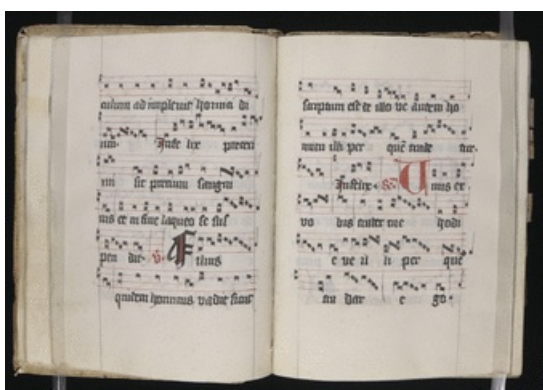 culum ad impleuit homici di
um. Infe lix preter
mi sit precium sangui
nis et in fine laqueo se sus
pen dit. Filius
quidem hominis vadit sicut
scriptum est de illo ve autem ho
mini illi per quē trade tur.
Infelix. Unus ex
vo bis tradet me hodi
e ve il li per quē
tra dar e go.